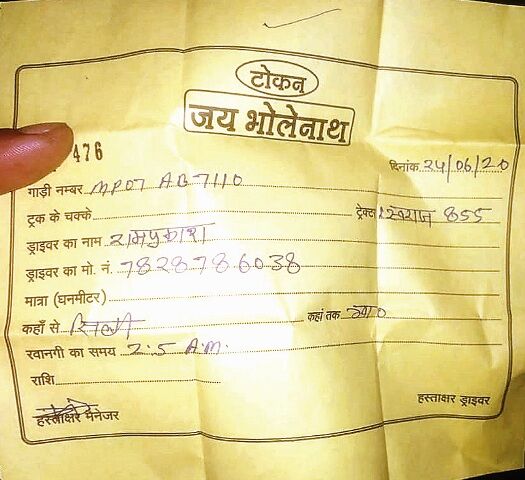 टोकन
जय भोलेनाथ
476 दिनांक 24/06/20
गाड़ी नम्बर MP07 AB7110
ट्रक के चक्के ट्रेक्टर स्वराज 855
ड्राइवर का नाम रामप्रकाश
ड्राइवर का मो. नं. 7828786038
मात्रा (घनमीटर)
कहाँ से कहां तक
रवानगी का समय 2.5 A.M.
राशि
हस्ताक्षर मैनेजर हस्ताक्षर ड्राइवर